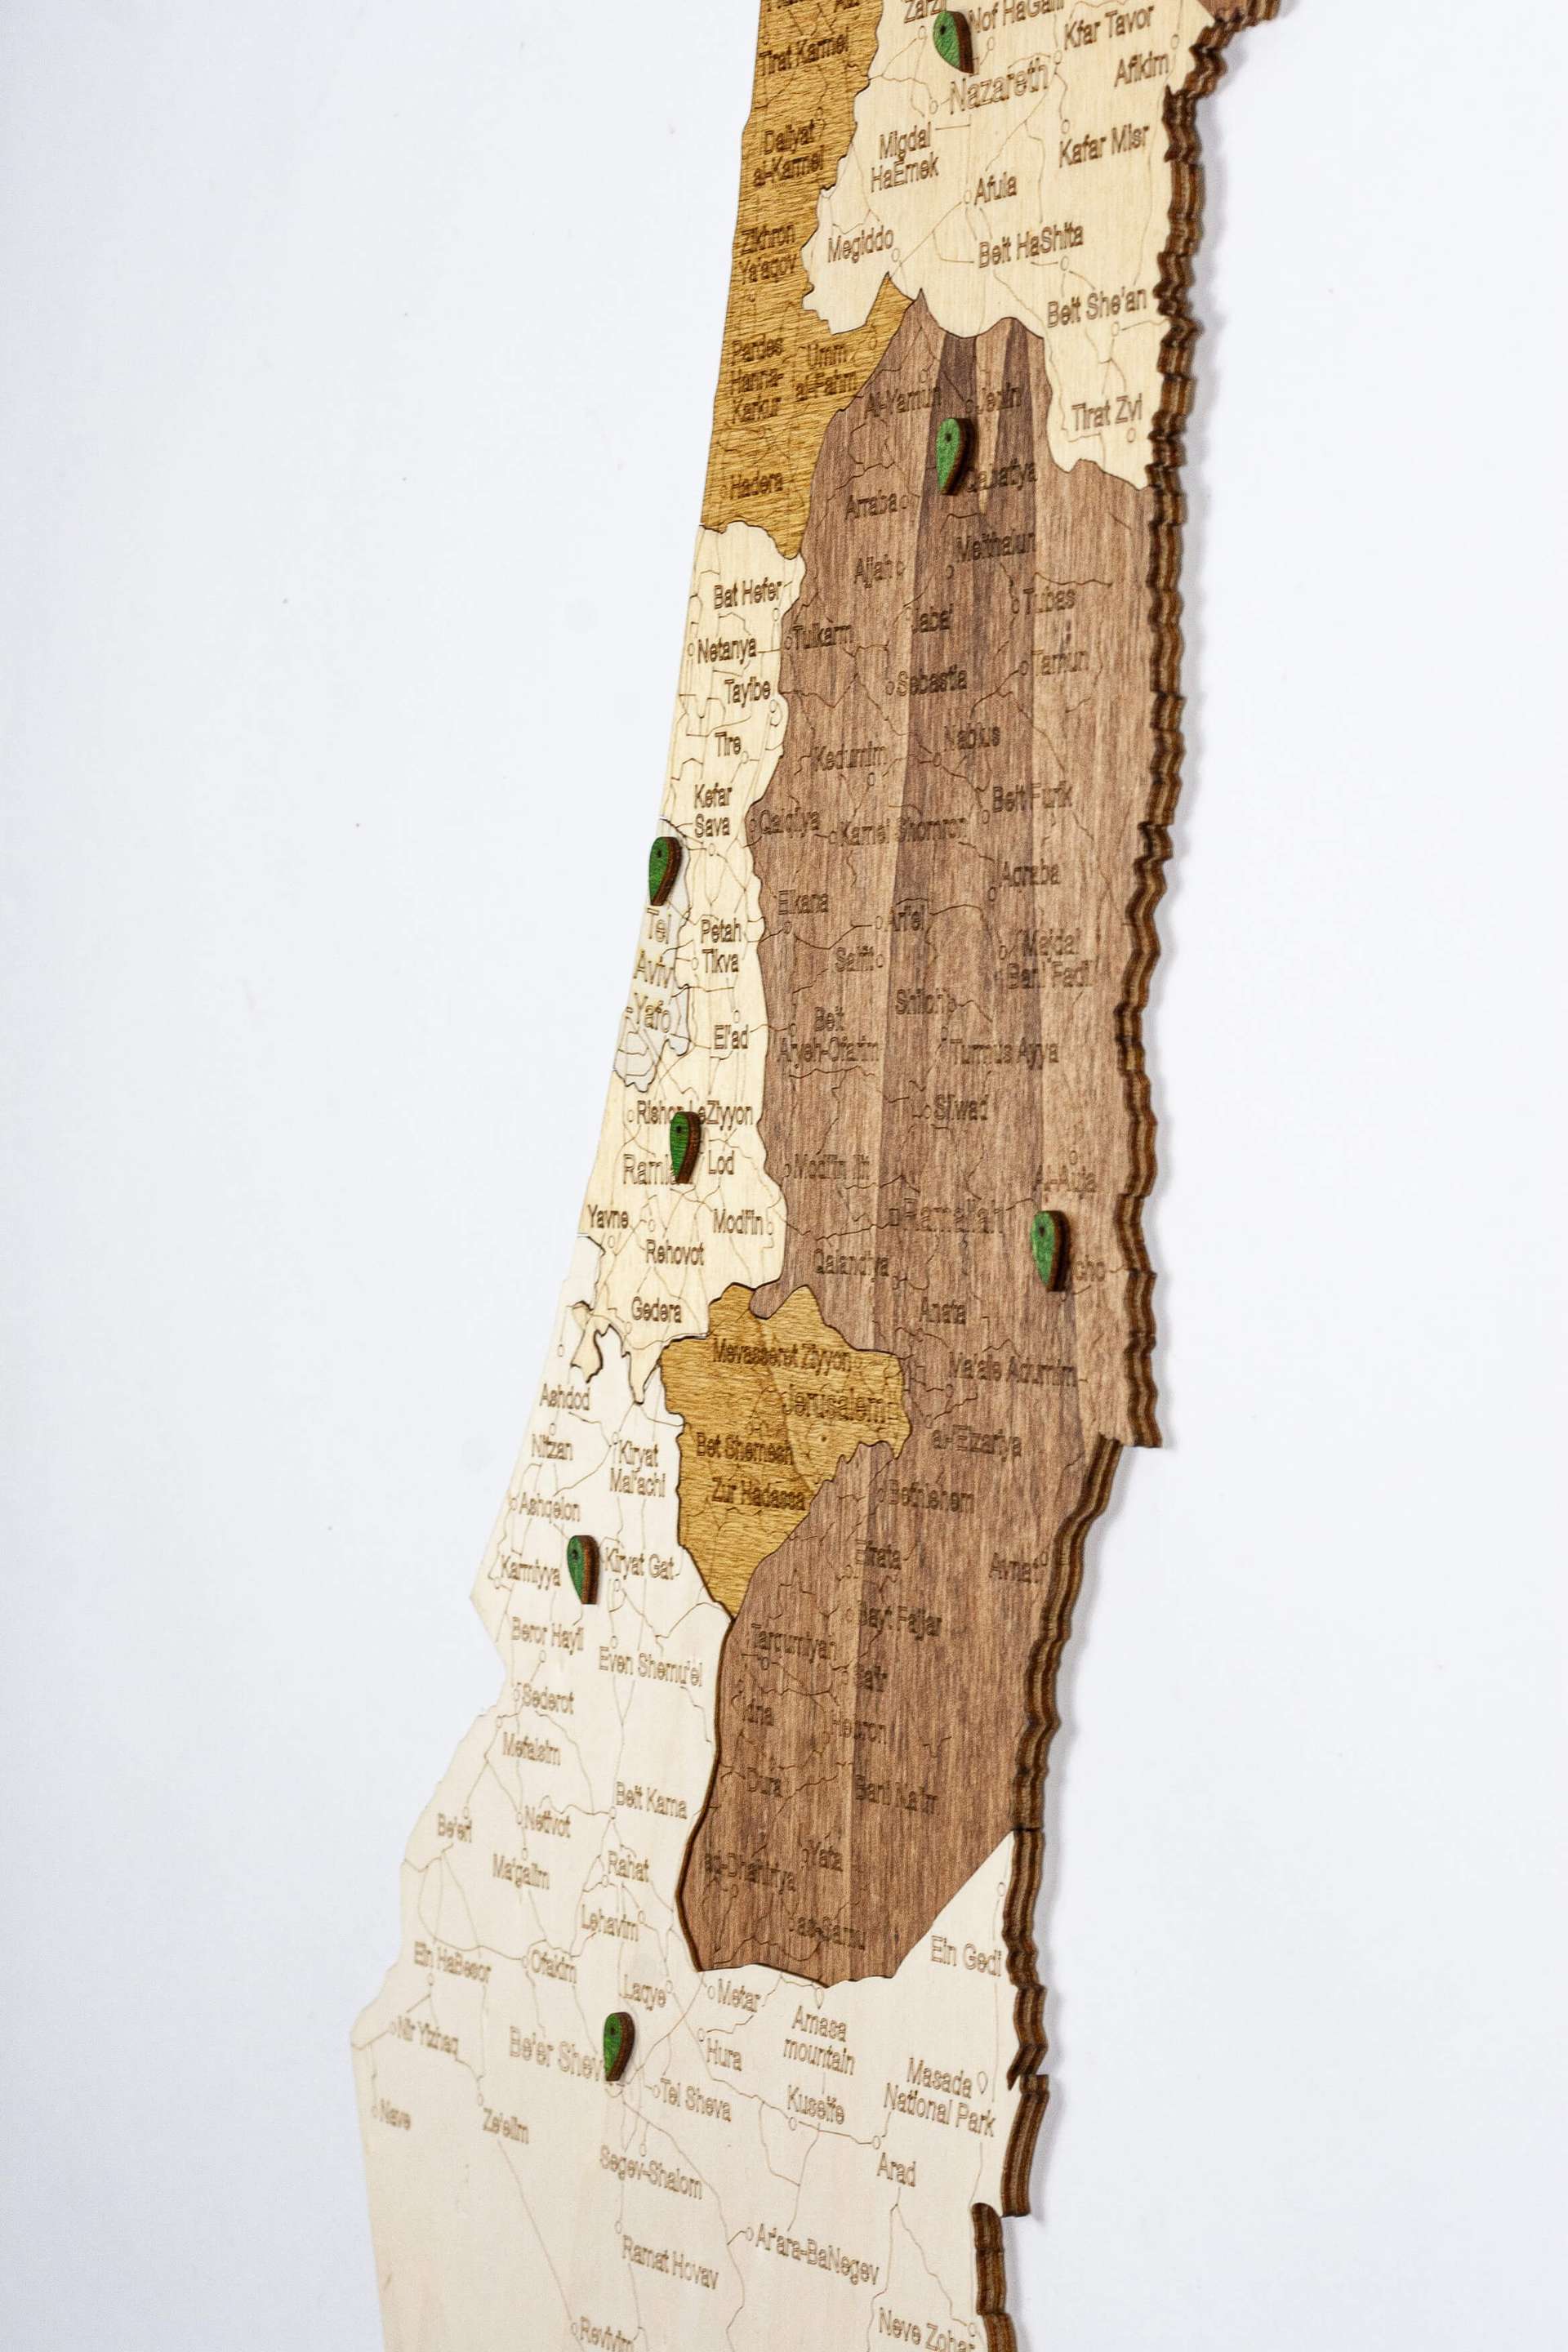 Tirat Karmel
Nof HaGalil
Kfar Tavor
Afikim
Nazareth
Daliyat
al-Karmel
Migdal
HaEmek
Kafar Misr
Afula
Zikhron
Ya'aqov
Megiddo
Beit HaShita
Beit She'an
Pardes
Hanna-
Karkur
Umm
al-Fahm
Al-Yamun
Jenin
Tirat Zvi
Hadera
Arraba
Qabatiya
Meithalun
Ajjah
Bat Hefer
Tubas
Jaba'
Netanya
Tulkarm
Tamun
Sebastia
Tayibe
Tire
Kedumim
Nablus
Kefar
Sava
Qalqilya
Karnei Shomron
Beit Furik
Aqraba
Elkana
Ari'el
Tel
Aviv
-Yafo
Petah
Tikva
Salfit
Majdal
Bani Fadil
Shiloh
El'ad
Beit
Aryeh-Ofarim
Turmus Ayya
Silwad
Rishon LeZiyyon
Lod
Modi'in Ilit
Al-Auja
Yavne
Modi'in
Ramallah
Rehovot
Qalandiya
cho
Gedera
Anata
Mevasseret Ziyyon
Ma'ale Adumim
Ashdod
Jerusalem
al-'Eizariya
Nitzan
Kiryat
Mal'achi
Bet Shemesh
Zur Hadassa
Bethlehem
Ashqelon
Karmiyya
Kiryat Gat
Efrata
Avnat
Bayt Fajjar
Beror Hayil
Even Shemu'el
Tarqumiyah
Sa'ir
Sederot
Idna
Hebron
Mefalsim
Dura
Bani Na'im
Beit Kama
Be'eri
Netivot
Yata
Ma'galim
Rahat
ad-Dhahiriya
as-Samu
Lehavim
Ein HaBesor
Ofakim
Ein Gedi
Laqye
Metar
Amasa
mountain
Nir Yizhaq
Be'er Shev
Hura
Masada
National Park
Tel Sheva
Kuseife
Nave
Ze'elim
Arad
Segev-Shalom
Ar'ara-BaNegev
Ramat Hovav
Neve Zohar
Revivim